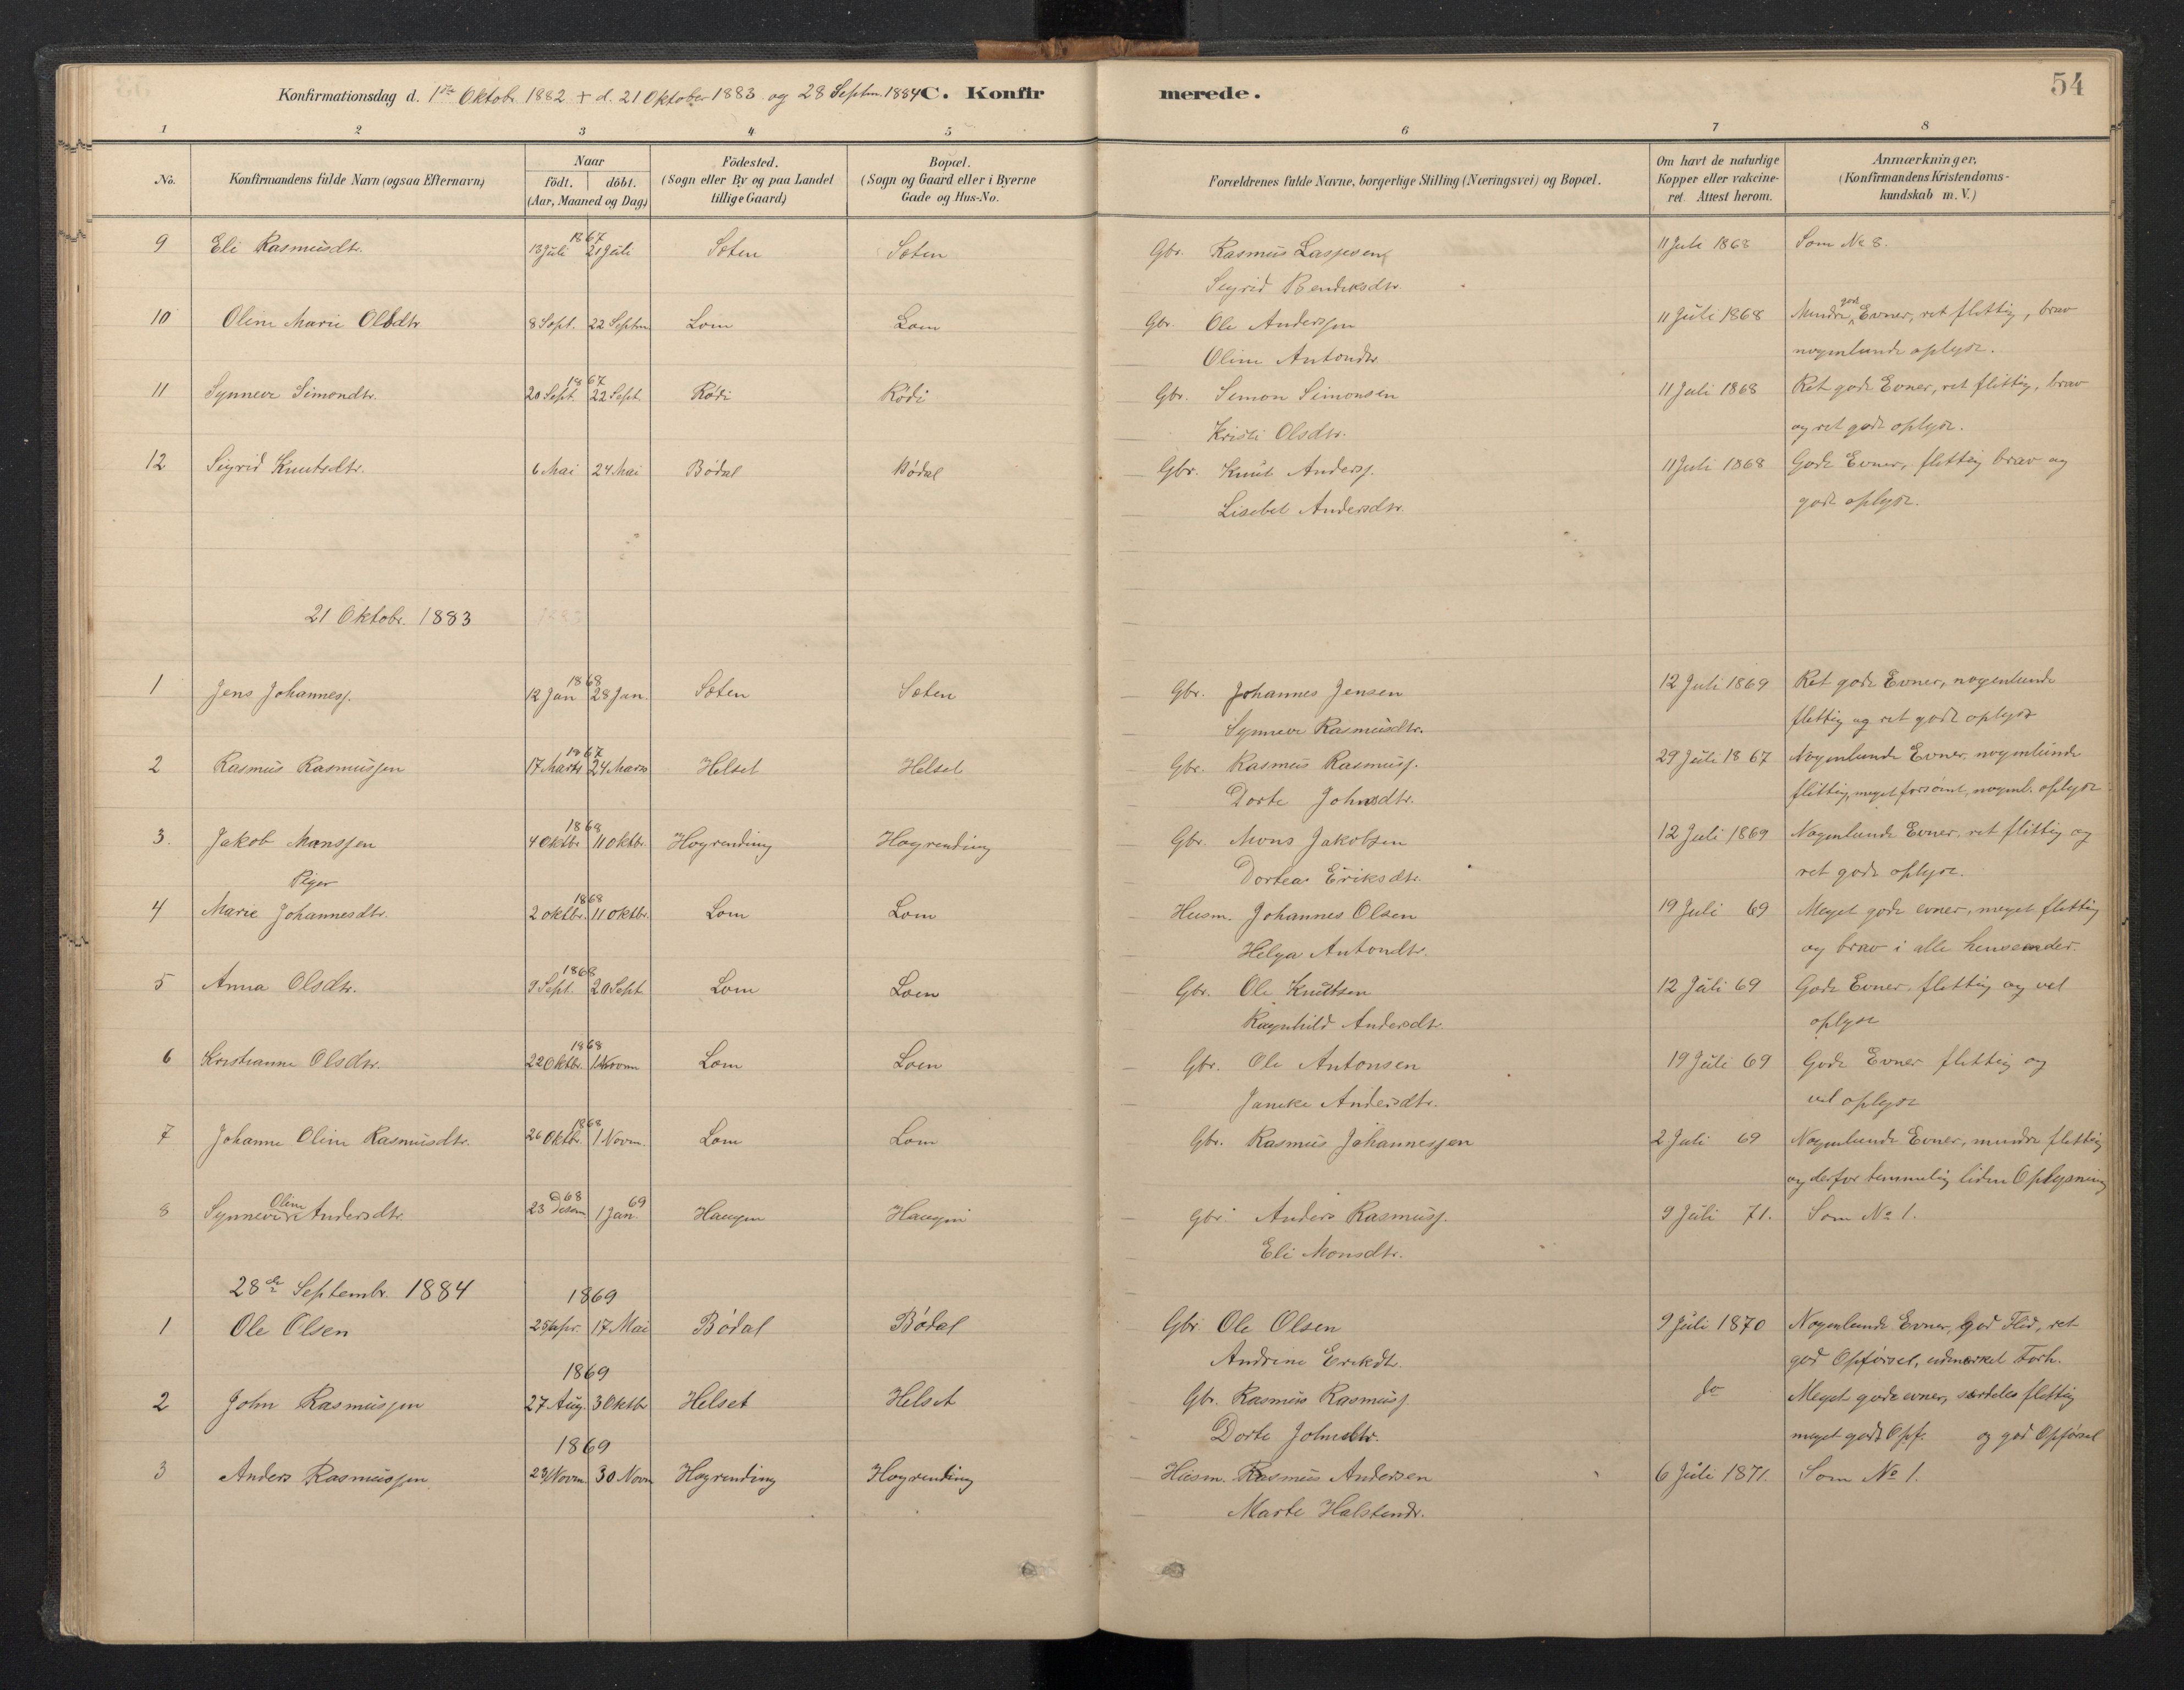 54
Konfirmationsdag d. 1ste Oktobr. 1882 + d. 21 Oktober 1883 og 28 Septm. 1884 C. Konfirmerede.
1 2 3 4 5 6 7 8
No. Konfirmandens fulde Navn (ogsaa Efternavn) Naar födt. döbt. (Aar, Maaned og Dag) Födested. (Sogn eller By og paa Landet tillige Gaard) Bopæl. (Sogn og Gaard eller i Byerne Gade og Hus-No. Forældrenes fulde Navne, borgerlige Stilling (Næringsvei) og Bopæl. Om havt de naturlige Kopper eller vakcineret. Attest herom. Anmærkninger. (Konfirmandens Kristendomskundskab m. V.)
1867
9 Eli Rasmusdtr. 13 Juli 21 Juli Sæten Sæten Gbr. Rasmus Lassesen 11 Juli 1868 Som No 8.
Sigrid Bendiksdtr.
10 Oline Marie Olsdtr. 8 Sept. 22 Septm Loen Loen Gbr. Ole Anderssen 11 Juli 1868 Mindre god Evner, ret flittig, brav
Oline Antondtr. nogenlunde oplyst.
1867
11 Synneve Simondtr. 20 Sept. 22 Sept. Rödi Rödi Gbr. Simon Simonsen 11 Juli 1868 Ret gode Evner, ret flittig, brav
Kristi Olsdtr. og ret godt oplyst.
12 Sigrid Knutsdtr. 6 Mai 24 Mai Bödal Bödal Gbr. Knut Anderss. 11 Juli 1868 Gode Evner, flittig brav og
Lisebet Andersdtr. godt oplyst.
21 Oktobr. 1883
1868
1 Jens Johanness. 12 Jan 28 Jan. Sæten Sæten Gbr. Johannes Jensen 12 Juli 1869 Ret gode Evner, nogenlunde
Synneve Rasmusdtr. flittig og ret godt oplyst
1867
2 Rasmus Rasmussen 17 Marts 24 Marts Helset Helset Gbr. Rasmus Rasmuss. 29 Juli 1867 Nogenlunde Evner, nogenlunde
Dorte Johnsdtr. flittig, meget forsömt, nogenl. oplyst
1868
3. Jakob Monssen 4 Oktbr. 11 Oktbr. Hogrending Hogrending Gbr. Mons Jakobsen 12 Juli 1869 Nogenlunde Evner, ret flittig og
Dortea Eriksdtr. ret godt oplyst.
Piger
1868
4 Marie Johannesdtr. 2 oktbr. 11 oktbr. Loen Loen Husm. Johannes Olsen 19 Juli 69 Meget gode evner, meget flittig
Helga Antondtr. og brav i alle henseender.
1868
5 Anna Olsdtr. 9 Sept. 20 Sept Loen Loen Gbr. Ole Knutsen 12 Juli 69 Gode Evner, flittig og vel
Ragnhild Andersdtr. oplyst
1868
6 Kristianne Olsdtr. 22 Oktbr. 1 Novm Loen Loen Gbr. Ole Antonsen 19 Juli 69 Gode Evner flittig og
Janike Andersdtr. vel oplyst
1868
7 Johanne Oline Rasmusdtr. 26 Oktbr. 1 Novm. Loen Loen Gbr. Rasmus Johannessen 2 Juli 69 Nogenlunde Evner, mindre flittig
og derfor temmelig liden Oplysning
68 69
8 Synneve Oline Andersdtr. 23 Desem 1 Jan. Haugen Haugen Gbr. Anders Rasmuss. 9 Juli 71. Som No 1.
Eli Monsdtr.
28de Septembr. 1884 1869
1 Ole Olsen 25 Apr. 17 Mai Bödal Bödal Gbr. Ole Olsen 9 Juli 1870 Nogenlunde Evner, god Flid, ret
Andrine Erikdtr. god Opförsel, udmærket Forh.
1869
2 John Rasmussen 27 Aug. 3 Oktbr Helset Helset Gbr. Rasmus Rasmuss. do Meget gode evner, særdeles flittig
Dorte Johnsdtr. meget godt Opf. og god Opförsel
1869
3 Anders Rasmussen. 23 Novm 30 Novm Hogrending Hogrending Husm. Rasmus Andersen 6 Juli 1871. Som No 1.
Marte Halstendr.